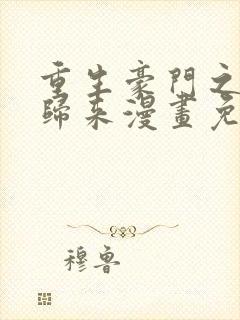 重生豪門之
歸來漫畫免
穆魯